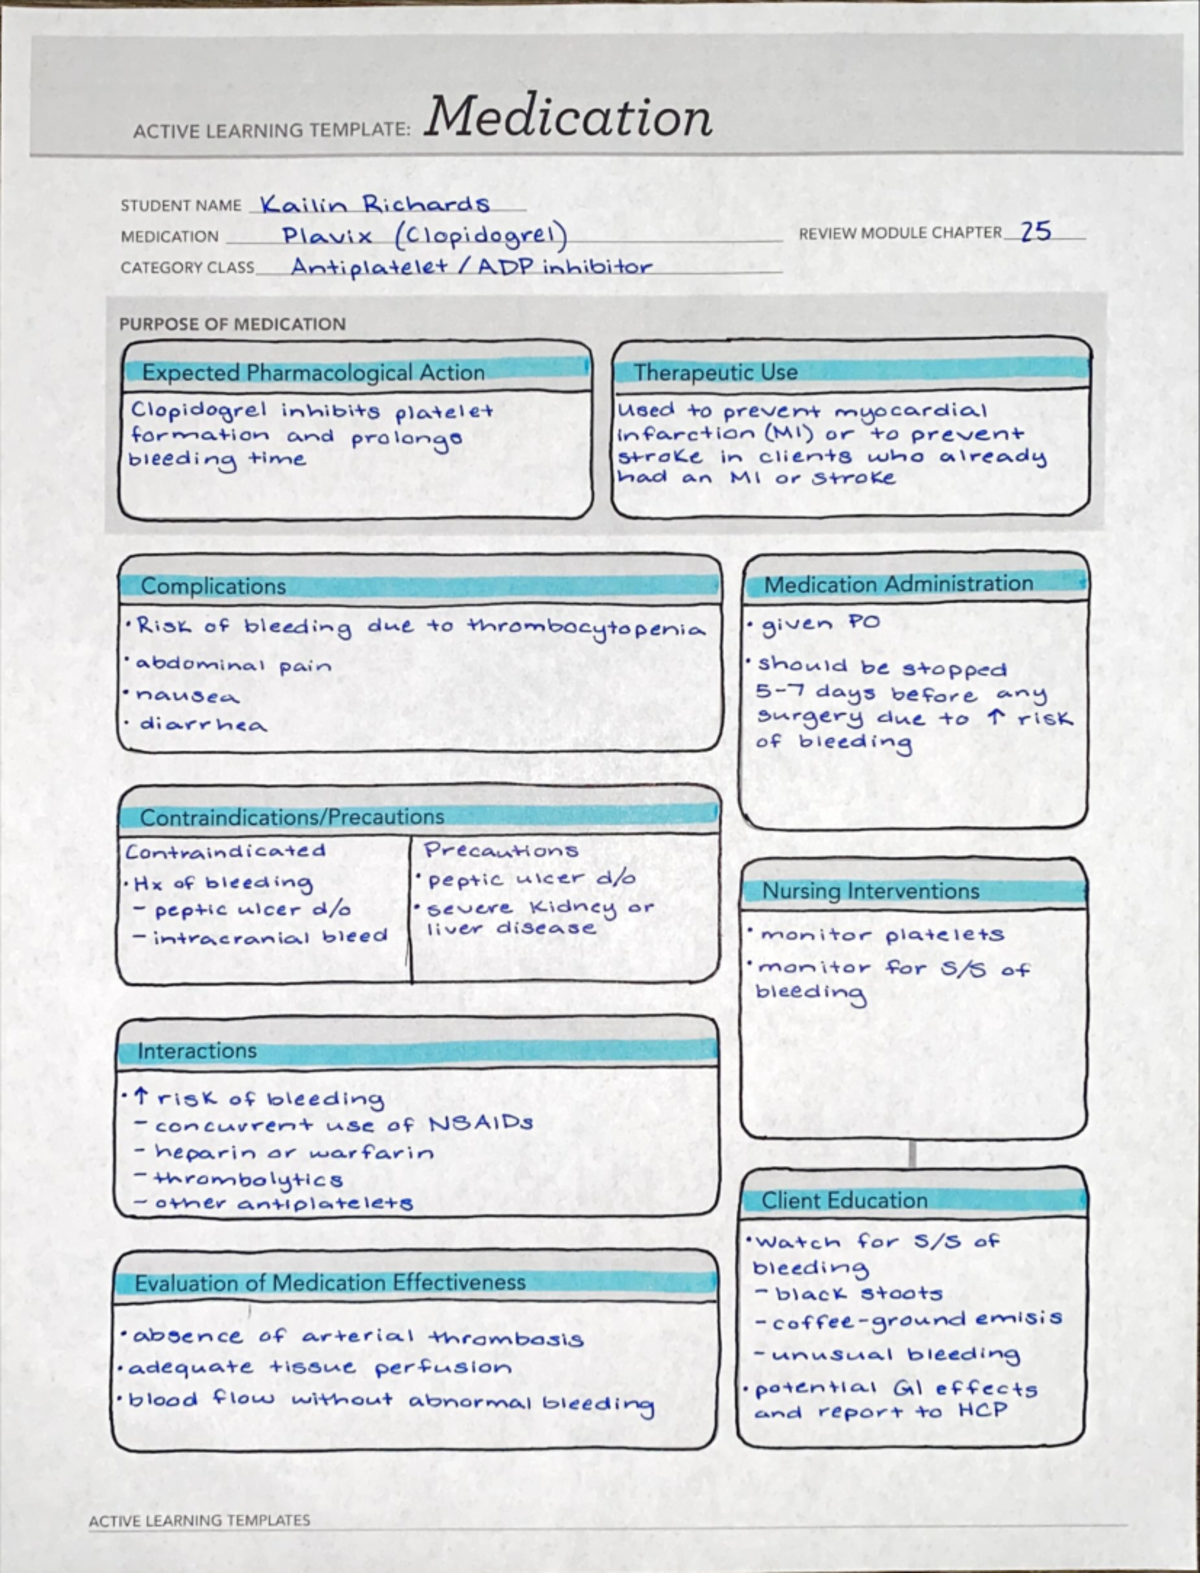 ACTIVE LEARNING TEMPLATE: Medication
STUDENT NAME Kailin Richards
MEDICATION Plavix (Clopidogrel)
REVIEW MODULE CHAPTER 25
CATEGORY CLASS Antiplatelet / ADP inhibitor
PURPOSE OF MEDICATION
Expected Pharmacological Action
Clopidogrel inhibits platelet
formation and prolongs
bleeding time
Therapeutic Use
Used to prevent myocardial
infarction (MI) or to prevent
stroke in clients who already
had an MI or stroke
Complications
•Risk of bleeding due to thrombocytopenia
•abdominal pain
•nausea
• diarrhea
Medication Administration
• given PO
• should be stopped
5-7 days before any
surgery due to ↑ risk
of bleeding
Contraindications/Precautions
Contraindicated
•Hx of bleeding
- peptic ulcer d/o
- intracranial bleed
Precautions
• peptic ulcer d/o
• severe kidney or
liver disease
Nursing Interventions
• monitor platelets
• monitor for S/S of
bleeding
Interactions
•↑ risk of bleeding
- concurrent use of NSAIDs
- heparin or warfarin
- thrombolytics
- other antiplatelets
Client Education
•Watch for S/S of
bleeding
- black stoots
- coffee-ground emisis
- unusual bleeding
• potential GI effects
and report to HCP
Evaluation of Medication Effectiveness
• absence of arterial thrombosis
• adequate tissue perfusion
• blood flow without abnormal bleeding
ACTIVE LEARNING TEMPLATES